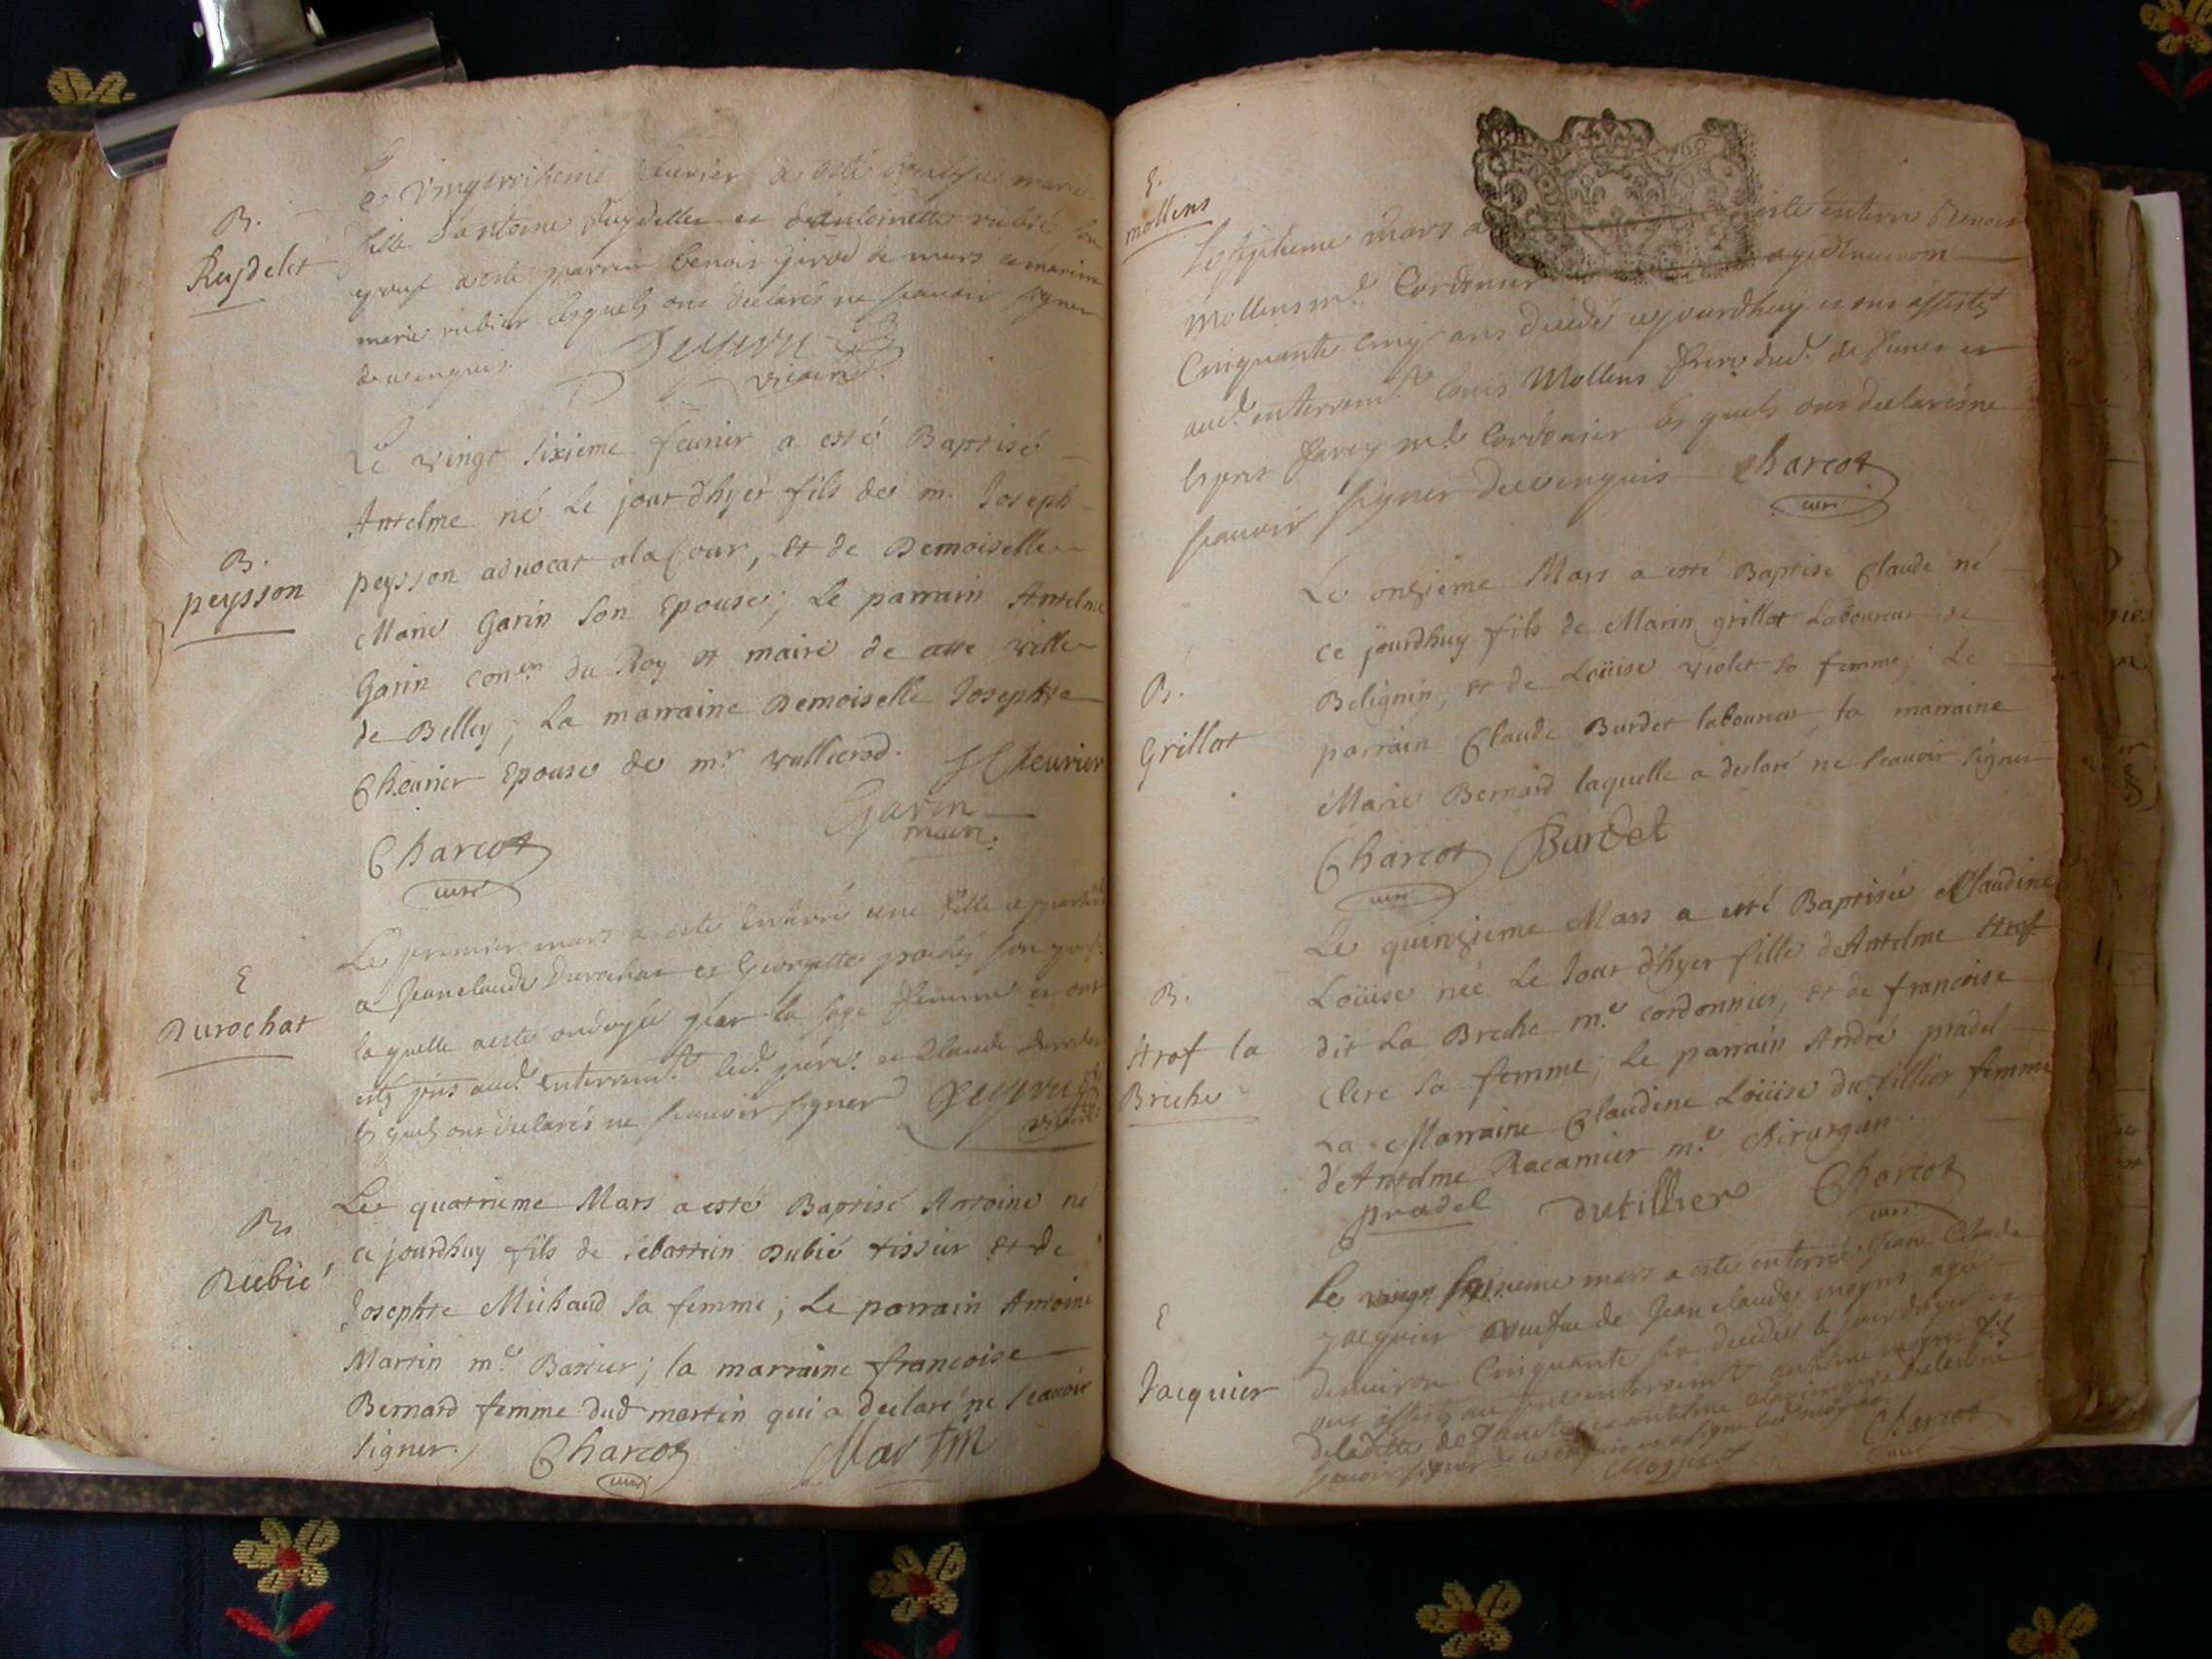 B.
Reydelet
Le vingt troisieme feurier a esté baptisée marie
fille d'antoine Reydellet et d'antoinette rubié son
epouse a esté parrin benoit girod de murs la marine
marie rubier lesquels ont declarés ne scauoir signer
de ce enquis.
vicaire
B.
peysson
Le vingt sixieme feurier a esté Baptisé
Antelme né Le jour d'hyer fils de m. Joseph
peysson aduocat ala Cour, et de Demoiselle
Marie Garin son Epouse; Le parrain Antelme
Garin con.er du Roy et maire de cette ville
de Belley; La marraine Demoiselle Josephte
Cheurier Epouse de m.r Wullierod. J Cheurier
Garin
maire
Charcot
curé
E
Durochat
Le premier mars a esté enterré une fille appartenant
a Jeanclaude Durochat et Georgette
laquelle a esté ondoyée par la sage femme et ont
estez pris aud. enterrem.t led. pere et Claude Durochat
lesquels ont declarés ne scauoir signer
vicaire
B
Rubié
Le quatrieme Mars a esté Baptisé Antoine né
ce jourdhuy fils de sebastien Rubié tissier et de
Josephte Michaud sa femme; Le parrain Antoine
Martin m.e Bastier; la marraine francoise
Bernard femme dud martin qui a declaré ne scauoir
signer. Charcot Martin
curé
E.
mollens
Le septieme mars a esté enterre Benoit
Mollens m.e Cordonier agé d'enuiron
Cinquante cinq ans decedé cejourdhuy et ont assistés
aud. enterrem.t Louis Mollens frere dud. defunct et
m.e Cordonier lesquels ont declarés ne
scauoir signer de ce enquis Charcot
curé
B.
Grillot
Le onzieme Mars a esté Baptisé Claude né
ce jourdhuy fils de Marin grillot Laboureur de
Belignin, et de Loüise violet sa femme; Le
parrain Claude Burdet laboureur, la marraine
Marie Bernard laquelle a declaré ne scauoir signer
Charcot Burdet
curé
B.
Strof la
Breche
Le quinzieme Mars a esté Baptisée Claudine
Loüise née Le Jour d'hyer fille de Antelme Strof
dit La Breche m.e cordonnier, et de francoise
Clerc sa femme; Le parrain André pradel
La Marraine Claudine Loüise du tillier femme
d'Antelme Racamier m.e Chirurgien.
pradel Dutillier Charcot
curé
E
Jacquier
Le vingt sixieme mars a esté enterrée Jeane Claude
Jacquier veufue de Jean claude moyns agée
denuiron Cinquante six decedée le jour dhyer et
ont assistés au enterrem.t moyns fils
de ladite defuncte et antelme
scauoir signer de ce enquis
Charcot
curé